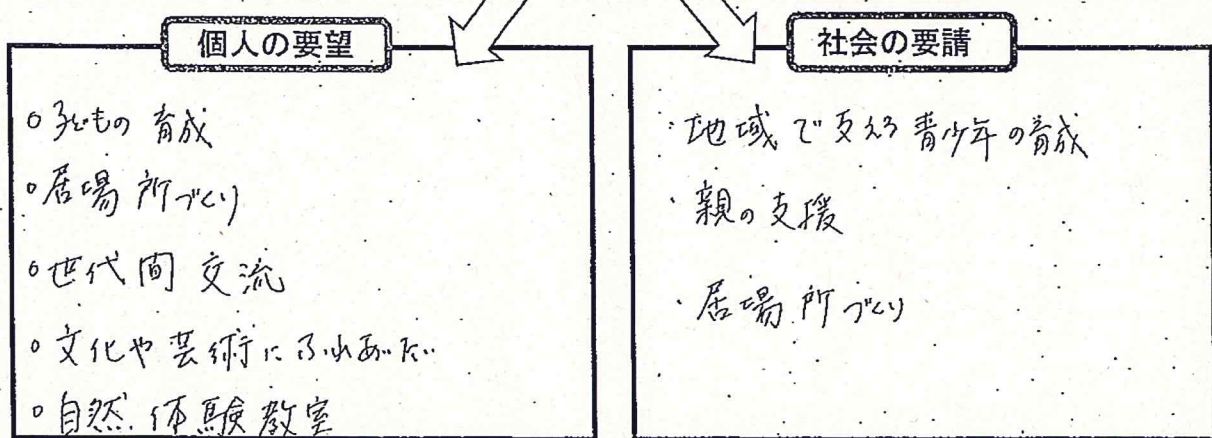 個人の要望
○子どもの育成
○居場所づくり
○世代間交流
○文化や芸術にふれあいたい
○自然体験教室
社会の要請
・地域で支える青少年の育成
・親の支援
・居場所づくり